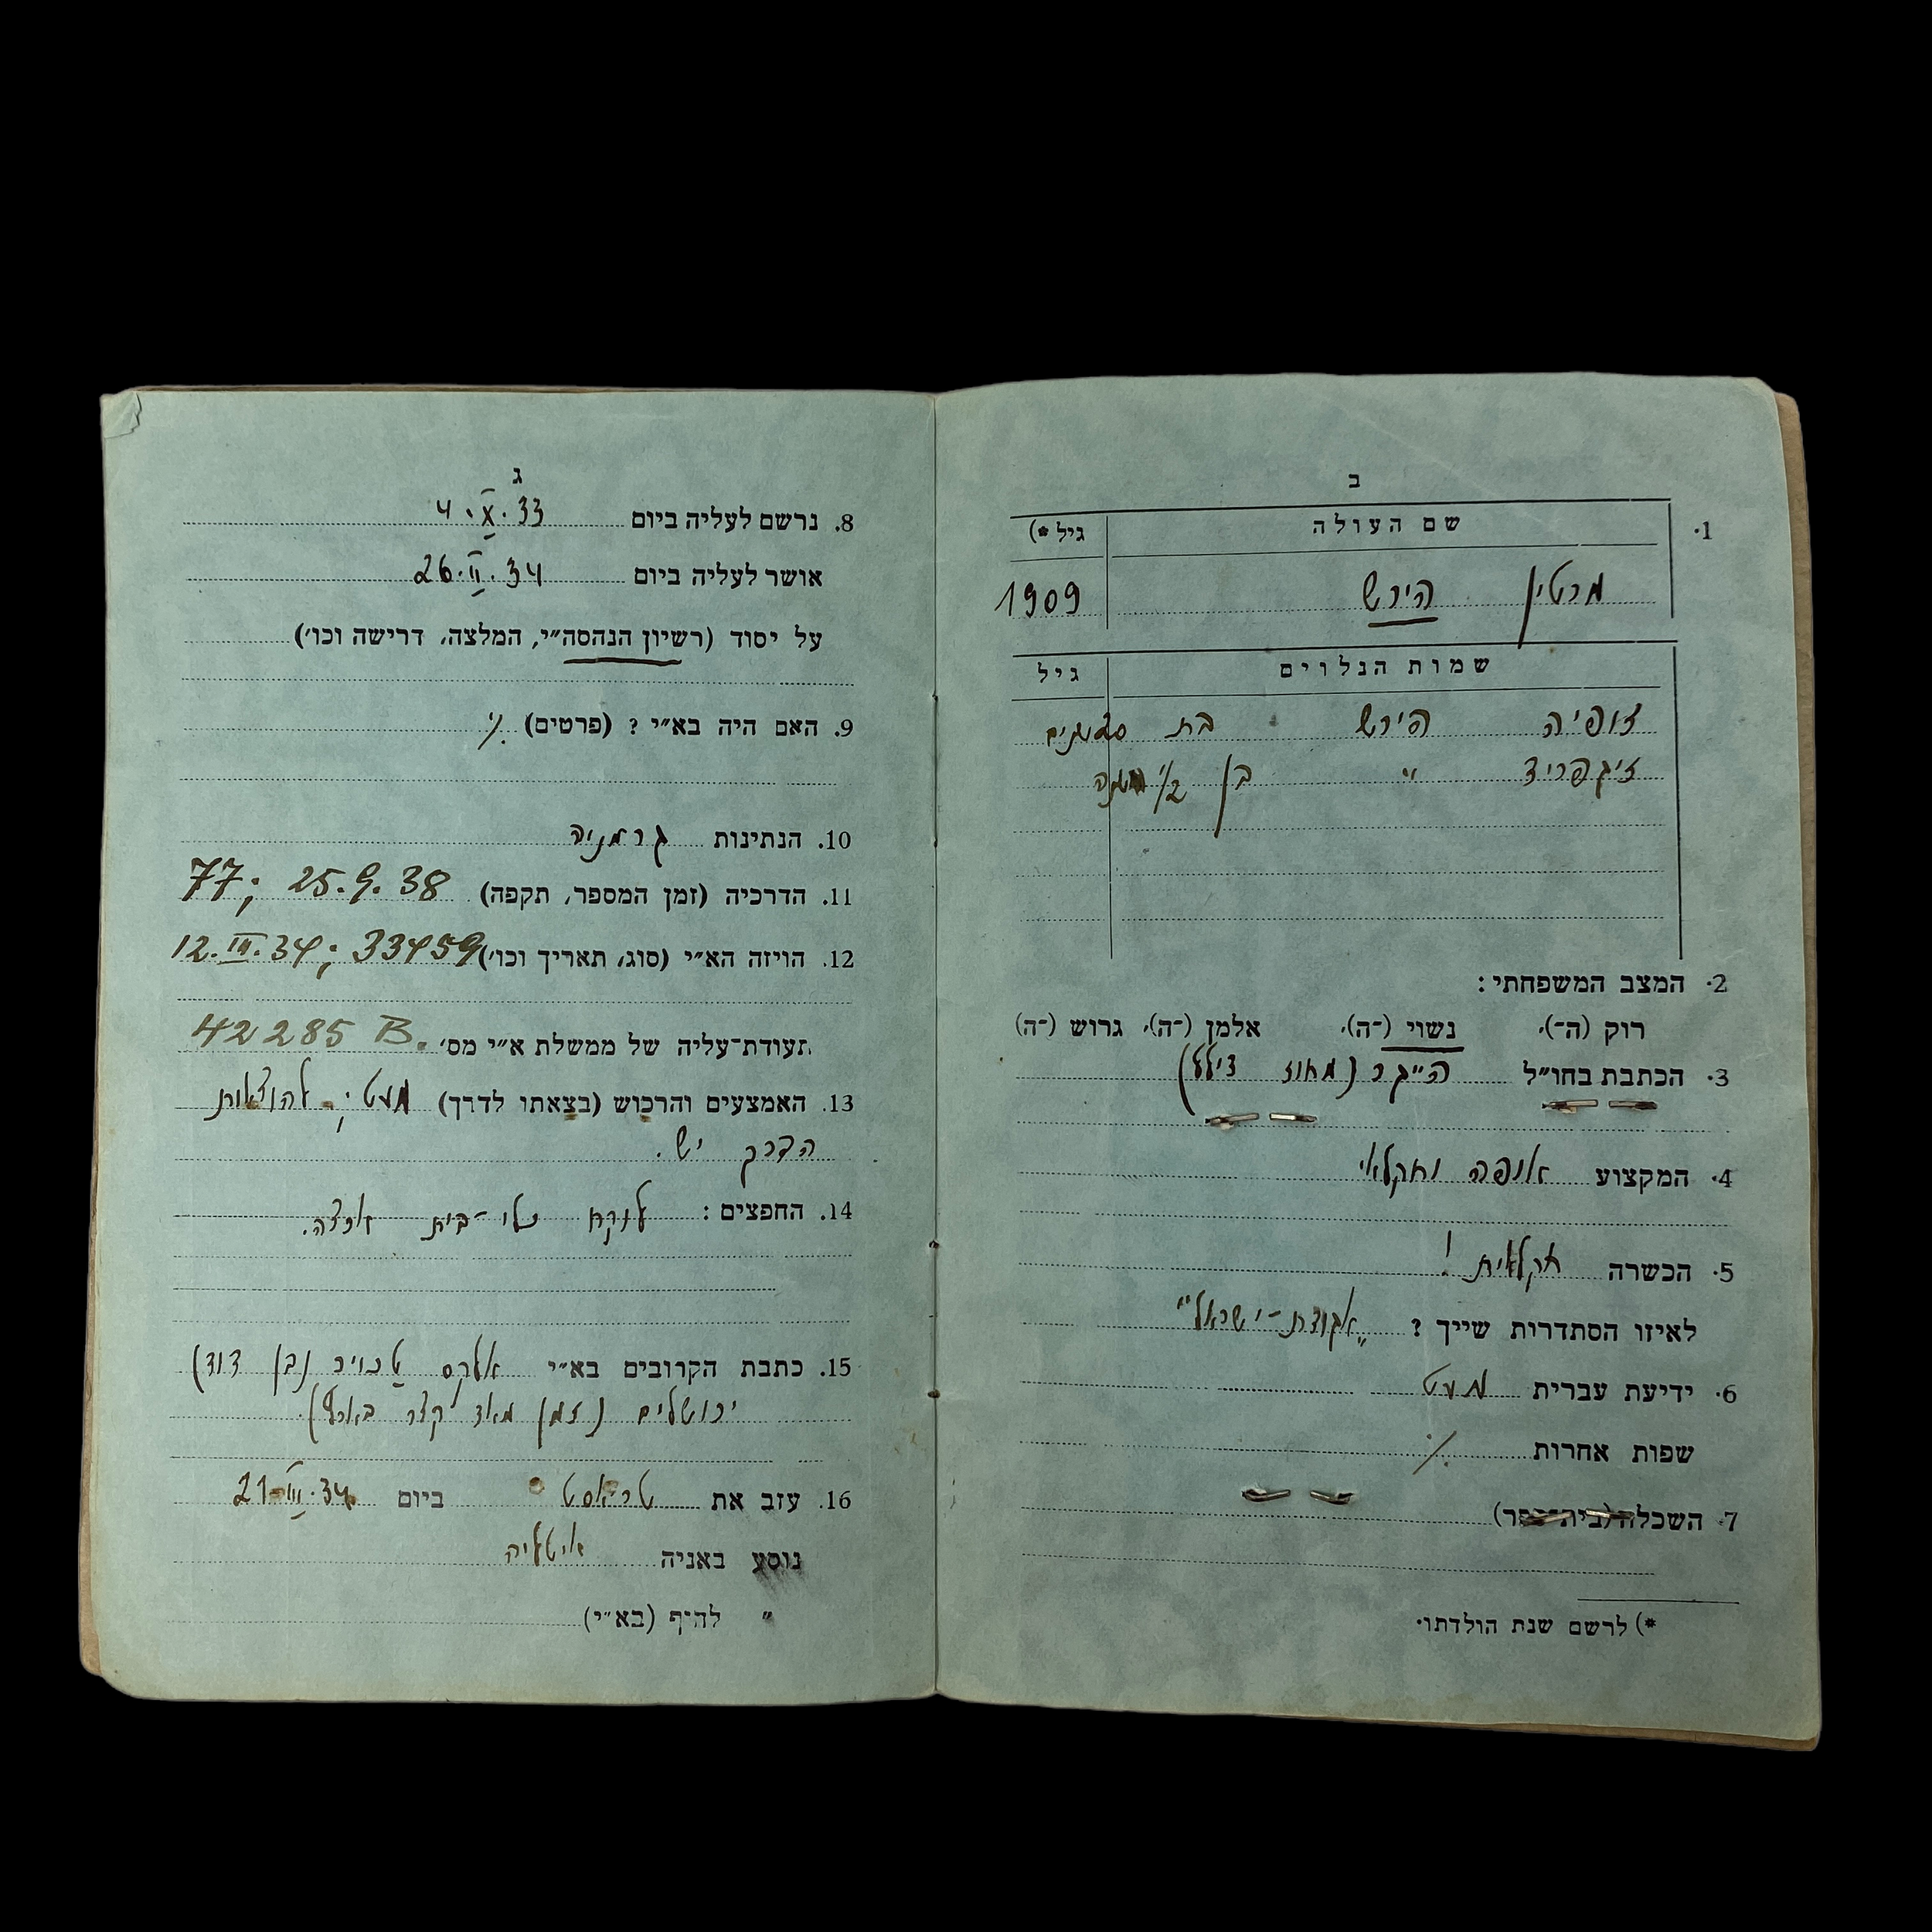 ב
1. שם העולה גיל *)
מרטין הירש 1909
שמות הנלוים גיל
זופיה הירש בת
זיגפריד " בן 1/2 שנה
2. המצב המשפחתי:
רוק (ה־), נשוי (־ה), אלמן (־ה), גרוש (־ה)
3. הכתבת בחו״ל
4. המקצוע אופה וחקלאי
5. הכשרה חקלאית!
לאיזו הסתדרות שייך? „אגודת-ישראל"
6. ידיעת עברית מעט
שפות אחרות ./.
7. השכלה (בית־ספר)
*) לרשם שנת הולדתו.
ג
8. נרשם לעליה ביום 4.X.33
אושר לעליה ביום 26.II.34
על יסוד (רשיון הנהסה״י, המלצה, דרישה וכו׳)
9. האם היה בא״י? (פרטים) ./.
10. הנתינות גרמניה
11. הדרכיה (זמן המספר, תקפה) 77; 25.9.38
12. הויזה הא״י (סוג, תאריך וכו׳) 12.III.34; 33459
תעודת־עליה של ממשלת א״י מס׳ 42285 B.
13. האמצעים והרכוש (בצאתו לדרך) מעט; להוצאות
הדרך יש.
14. החפצים: לוקח כלי-בית ארצה.
15. כתבת הקרובים בא״י אלקס (בן דוד)
ירושלים (זמן מאד קצר בארץ).
16. עזב את טריאסט ביום 21.III.34
נוסע באניה איטליה
" לחיף (בא״י)